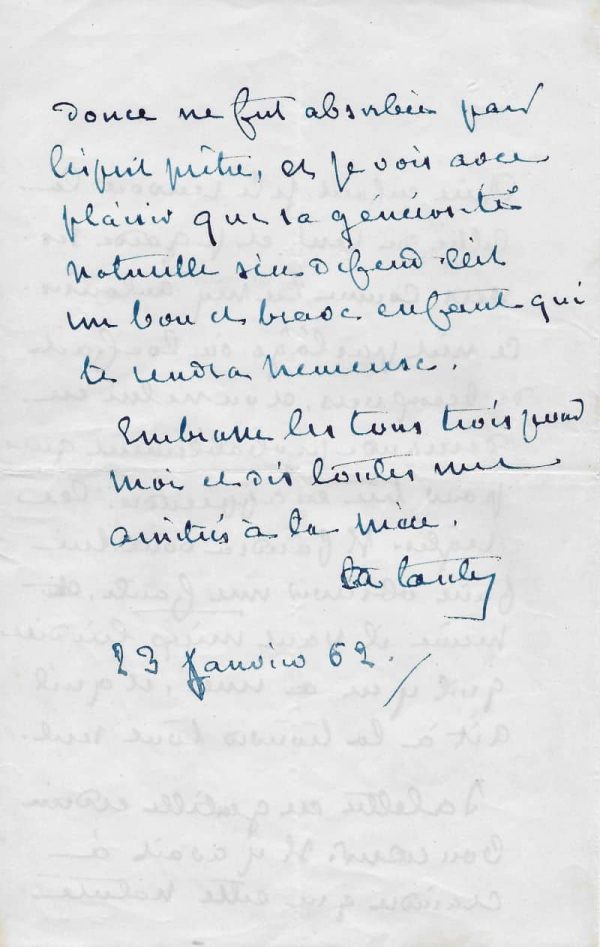 douce ne fut absorbée par
l'esprit prêtre, et je vois avec
plaisir que sa générosité
naturelle s'en défend. C'est
un bon et brave enfant qui
te rendra heureuse.
Embrasse les tous trois pour
moi et dis toutes mes
amitiés à la mère.
ta tante
23 Janvier 62.